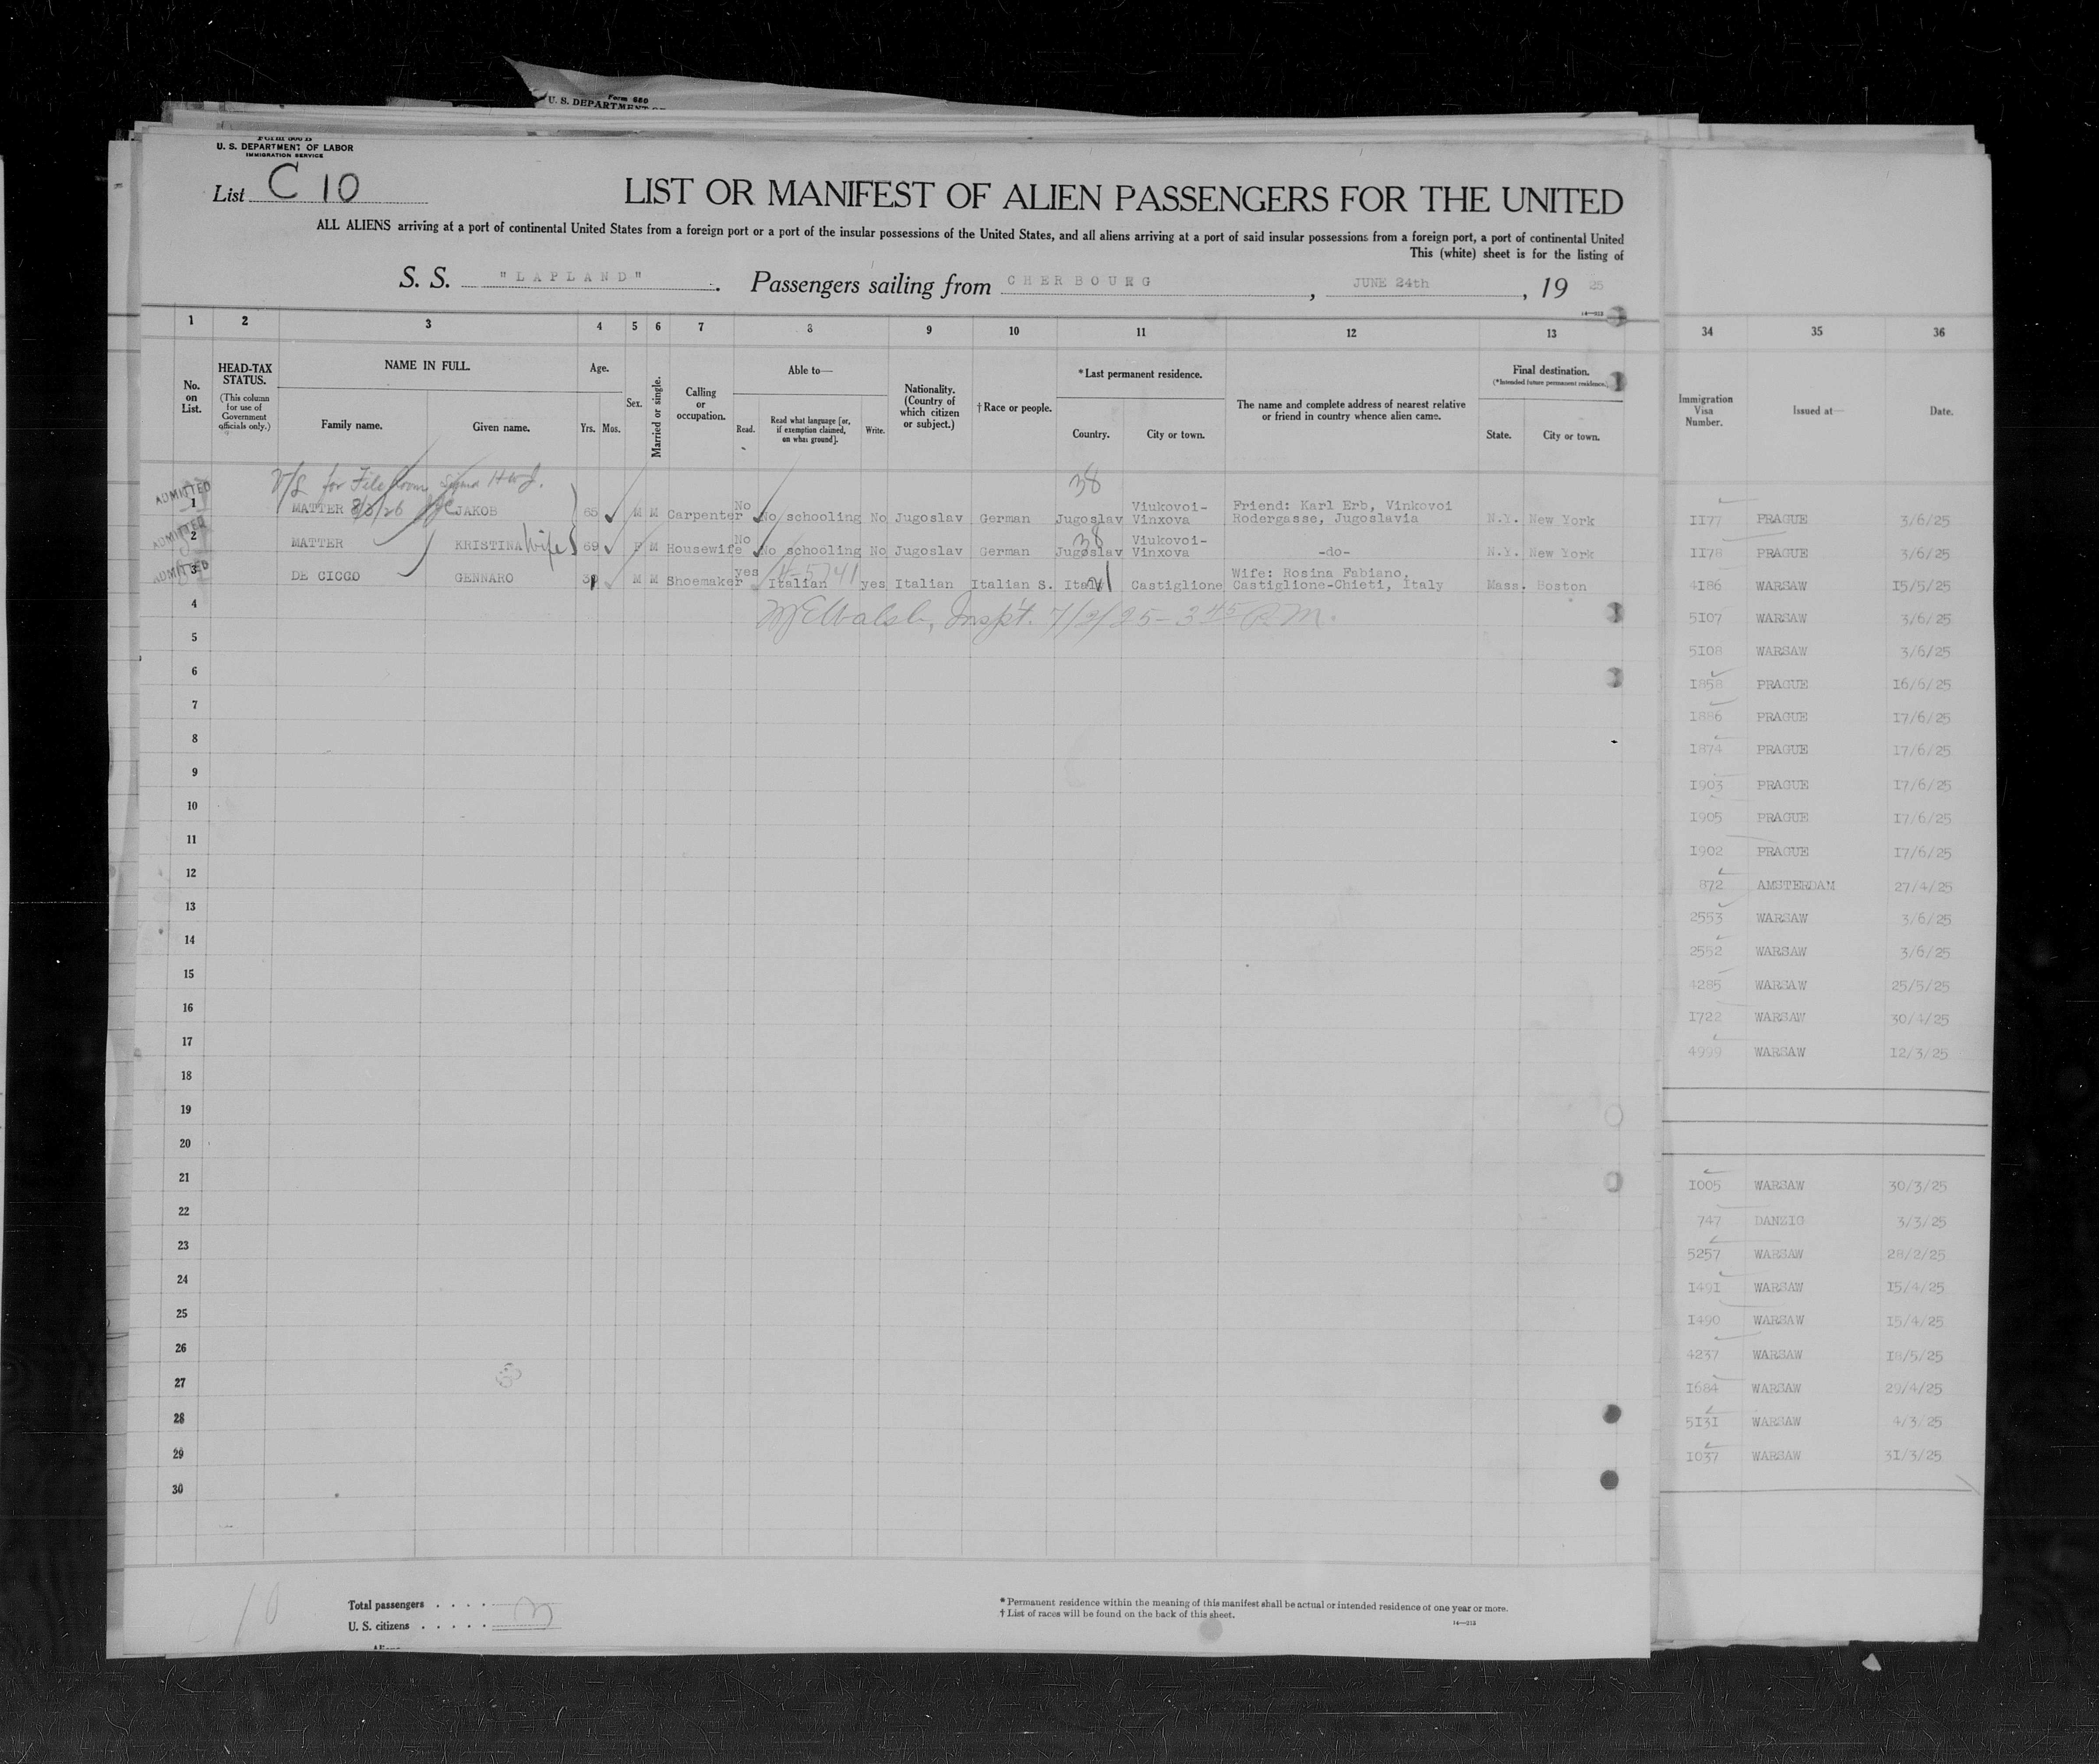 Form 680
U. S. DEPARTMENT
U. S. DEPARTMENT OF LABOR
IMMIGRATION SERVICE
List C 10
LIST OR MANIFEST OF ALIEN PASSENGERS FOR THE UNITED
ALL ALIENS arriving at a port of continental United States from a foreign port or a port of the insular possessions of the United States, and all aliens arriving at a port of said insular possessions from a foreign port, a port of continental United
This (white) sheet is for the listing of
S. S. "LAPLAND". Passengers sailing from CHERBOURG, JUNE 24th, 19 25
14—213
1 2 3 4 5 6 7 8 9 10 11 12 13
No. on List.
HEAD-TAX STATUS.
(This column for use of Government officials only.)
NAME IN FULL.
Family name. Given name.
Age.
Yrs. Mos.
Sex.
Married or single.
Calling or occupation.
Able to—
Read. Read what language [or, if exemption claimed, on what ground]. Write.
Nationality. (Country of which citizen or subject.)
†Race or people.
*Last permanent residence.
Country. City or town.
The name and complete address of nearest relative or friend in country whence alien came.
Final destination.
(*Intended future permanent residence.)
State. City or town.
for File Room
38
ADMITTED 1 MATTER JAKOB 65 M M Carpenter No No schooling No Jugoslav German Jugoslav Viukovoi-Vinxova Friend: Karl Erb, Vinkovoi Rodergasse, Jugoslavia N.Y. New York
38
ADMITTED 2 MATTER KRISTINA Wife 69 F M Housewife No No schooling No Jugoslav German Jugoslav Viukovoi-Vinxova -do- N.Y. New York
ADMITTED 3 DE CICCO GENNARO M M Shoemaker yes Italian yes Italian Italian S. Italy Castiglione Wife: Rosina Fabiano, Castiglione-Chieti, Italy Mass. Boston
4
Walsh, Inspt. 7/2/25 - 3 45 P.M.
5
6
7
8
9
10
11
12
13
14
15
16
17
18
19
20
21
22
23
24
25
26
27
28
29
30
10
Total passengers . . . .
U. S. citizens . . . . .
* Permanent residence within the meaning of this manifest shall be actual or intended residence of one year or more.
† List of races will be found on the back of this sheet.
14—213
34 35 36
Immigration Visa Number. Issued at— Date.
1177 PRAGUE 3/6/25
1178 PRAGUE 3/6/25
4186 WARSAW 15/5/25
5107 WARSAW 3/6/25
5108 WARSAW 3/6/25
1858 PRAGUE 16/6/25
1886 PRAGUE 17/6/25
1874 PRAGUE 17/6/25
1903 PRAGUE 17/6/25
1905 PRAGUE 17/6/25
1902 PRAGUE 17/6/25
872 AMSTERDAM 27/4/25
2553 WARSAW 3/6/25
2552 WARSAW 3/6/25
4285 WARSAW 25/5/25
1722 WARSAW 30/4/25
4999 WARSAW 12/3/25
1005 WARSAW 30/3/25
747 DANZIG 3/3/25
5257 WARSAW 28/2/25
1491 WARSAW 15/4/25
1490 WARSAW 15/4/25
4237 WARSAW 18/5/25
1684 WARSAW 29/4/25
5131 WARSAW 4/3/25
1037 WARSAW 31/3/25